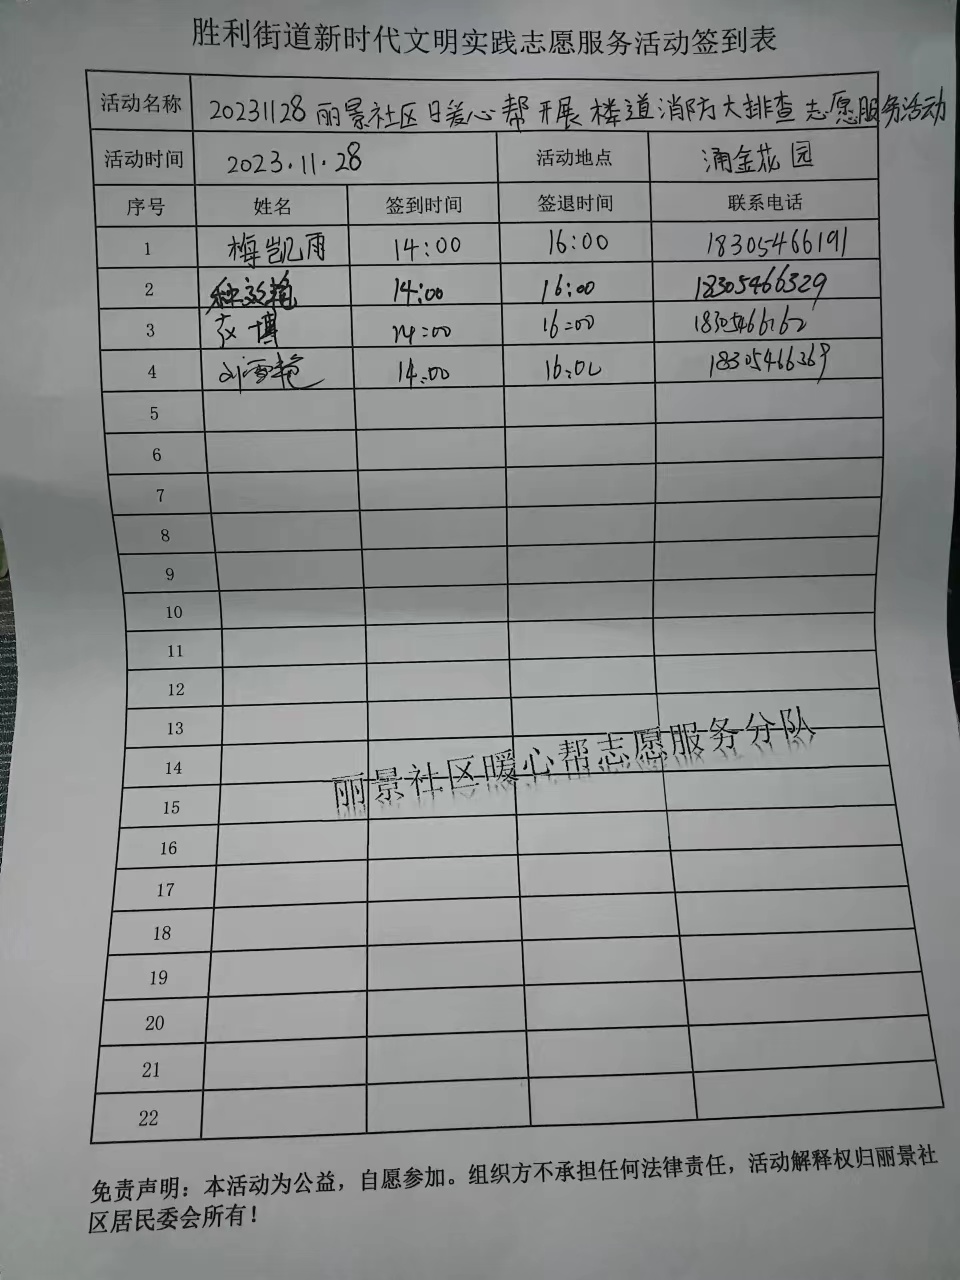 胜利街道新时代文明实践志愿服务活动签到表
活动名称 20231128丽景社区日爱心帮开展楼道消防大排查志愿服务活动
活动时间 2023.11.28 活动地点 涌金花园
序号 姓名 签到时间 签退时间 联系电话
1 梅凯雨 14:00 16:00 18305466191
2 14:00 16:00 18305466329
3 博 14:00 16:00 18305466162
4 刘雪艳 14:00 16:00 18305466369
5
6
7
8
9
10
11
12
13
14
丽景社区暖心帮志愿服务分队
15
16
17
18
19
20
21
22
免责声明：本活动为公益，自愿参加。组织方不承担任何法律责任，活动解释权归丽景社
区居民委会所有！